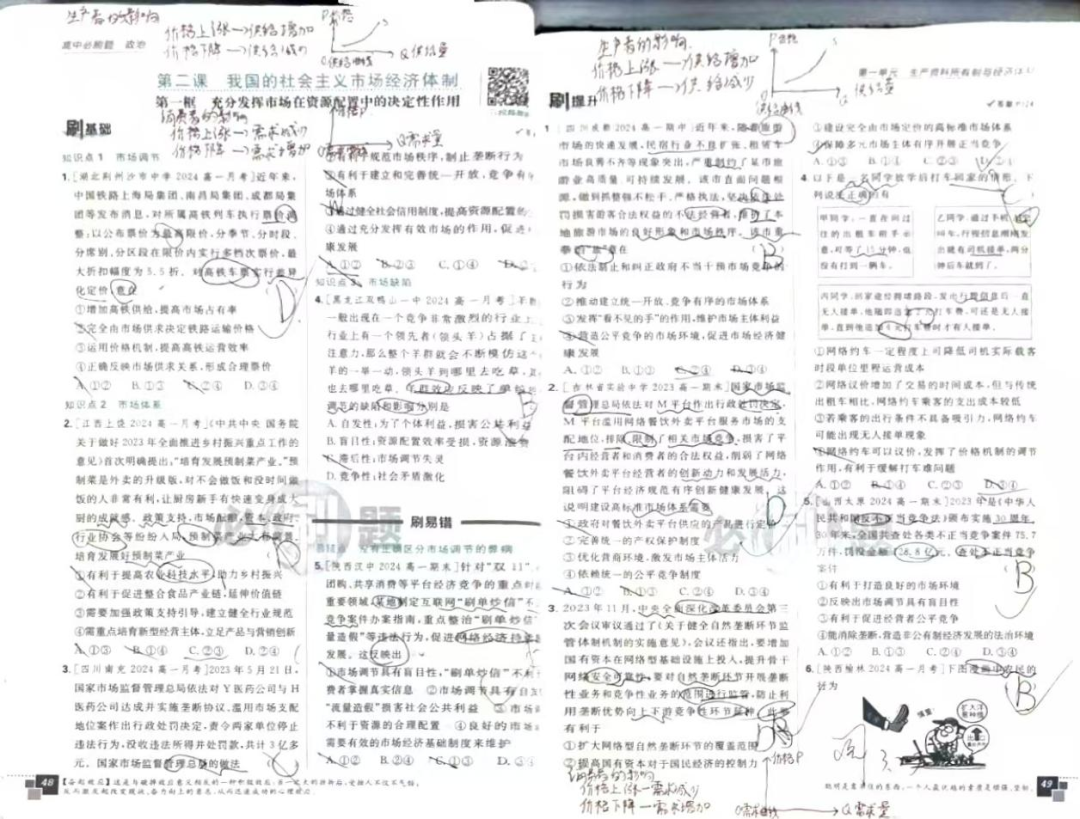 生产者的影响
价格上涨→供给增加
价格下降→供给减少
P价格
Q供给量
供给曲线
高中必刷题 政治
第二课 我国的社会主义市场经济体制
第一框 充分发挥市场在资源配置中的决定性作用
消费者的影响
价格上涨→需求减少
价格下降→需求增加
Q需求量
刷基础
知识点1 市场调节
1.[湖北荆州沙市中学2024高一月考]近年来,
中国铁路上海局集团、南昌局集团、成都局集
团等发布消息,对所属高铁列车执行票价调
整,以公布票价为最高限价,分季节、分时段、
分席别、分区段在限价内实行多档次票价,最
大折扣幅度为5.5折。对高铁车票实行差异
化定价意在
①增加高铁供给,提高市场占有率
②完全由市场供求决定铁路运输价格
③运用价格机制,提高高铁运营效率
④正确反映市场供求关系,形成合理票价
A.①② B.①③ C.②④ D.③④
D
知识点2 市场体系
2.[江西上饶2024高一月考]《中共中央 国务院
关于做好2023年全面推进乡村振兴重点工作的
意见》首次明确提出,“培育发展预制菜产业。”预
制菜是外卖的升级版,对不会做饭和没时间做
饭的人非常有利,让厨房新手有快速变身成大
厨的成就感。政策支持、市场
行业协会等纷纷入局
培育发展好预制菜产业
①有利于提高农业科技水平,助力乡村振兴
②有利于促进整合食品产业链,延伸价值链
③需要加强政策支持引导,建立健全行业规范
④需重点培育新型经营主体,立足产品与营销创新
A.①② B.①③ C.②③ D.②④
3.[四川南充2024高一月考]2023年5月21日,
国家市场监督管理总局依法对Y医药公司与H
医药公司达成并实施垄断协议、滥用市场支配
地位案作出行政处罚决定,责令两家单位停止
违法行为,没收违法所得并处罚款,共计3亿多
元。国家市场监督管理总局的做法
规范市场秩序,制止垄断行为
②有利于建立和完善统一开放、竞争有
场体系
③通过健全社会信用制度,提高资源配置的
④通过充分发挥有效市场的作用,促进
康发展
A.①② B.②③ C.①④
知识点3 市场缺陷
4.[黑龙江双鸭山一中2024高一月考]羊群
一般出现在一个竞争非常激烈的行业上
行业上有一个领先者(领头羊)占据了
注意力,那么整个羊群就会不断模仿这
羊的一举一动,领头羊到哪里去吃草,其
也去哪里吃草。羊群效应反映了单纯
调节的缺陷和影响分别是
A.自发性;为了个体利益,损害公共利益
B.盲目性;资源配置效率受损,资源浪费
C.滞后性;市场调节失灵
D.竞争性;社会矛盾激化
刷易错
易错点 没有正确区分市场调节的弊病
5.[陕西汉中2024高一期末]针对“双11”
团购、共享消费等平台经济竞争的重点时
重要领域,某地制定互联网“刷单炒信”不
竞争案件办案指南,重点整治“刷单炒信”
量造假”等违法行为,促进网络经济持
发展。这反映出
①市场调节具有盲目性,“刷单炒信”不利
费者掌握真实信息 ②市场调节具有自发
“流量造假”损害社会公共利益 ③市场
不利于资源的合理配置 ④良好的市场
需要有效的市场经济基础制度来维护
A.①② B.①③ C.②④
48
生产者的影响
价格上涨→供给增加
价格下降→供给减少
P价格
S
Q供给量
供给曲线
第一单元 生产资料所有制与经济体制
刷提升
1.[四川成都2024高一期中]近年来,随着旅游
市场的快速发展,民宿行业不良扩张、租赁车
市场良莠不齐等现象突出,严重制约了某市旅
游业高质量、可持续发展。该市直面问题根
源,碰到抓整顿不松手,严格执法,坚决依法惩
罚损害游客合法权益的不法经营者,维护了本
地旅游市场的良好形象和市场秩序。该市重
拳的“意”在
①依法制止和纠正政府不当干预市场竞争的
行为
②推动建立统一开放、竞争有序的市场体系
③发挥“看不见的手”的作用,维护市场主体利益
④营造公平竞争的市场环境,促进市场经济健
康发展
A.①② B.①③ C.②④ D.③④
2.[吉林省实验中学2023高一期末]国家市场监
督管理总局依法对M平台作出行政处罚决定。
M平台滥用网络餐饮外卖平台服务市场的支
配地位,排除、限制了相关市场竞争,损害了平
台内经营者和消费者的合法权益,削弱了网络
餐饮外卖平台经营者的创新动力和发展活力,
阻碍了平台经济规范有序创新健康发展。这
说明建设高标准市场体系需要
①政府对餐饮外卖平台供应的产品进行定价
②完善统一的产权保护制度
③优化营商环境,激发市场主体活力
④依赖统一的公平竞争制度
A.①② B.①③ C.②④ D.③④
D
3.2023年11月,中央全面深化改革委员会第三
次会议审议通过了《关于健全自然垄断环节监
管体制机制的实施意见》,会议还指出,要增加
国有资本在网络型基础设施上投入,提升骨干
网络安全可靠性。要对自然垄断环节开展垄断
性业务和竞争性业务的范围进行监管,防止利
用垄断优势向上下游竞争性环节延伸。此举
有利于
①扩大网络型自然垄断环节的覆盖范围
②提高国有资本对于国民经济的控制力
③建设完全由市场定价的高标准市场体系
④保障多元市场主体有序开展正当竞争
A.①③ B.①④ C.②③ D.②④
4.以下是三名同学放学后打车回家的情形。下
列说法正确的有
甲同学:一直在向过
往的出租车招手示
意,可等了15分钟,也
没有打到一辆车。
乙同学:通过手机
叫车,行程信息刚刚发
出就有司机接单,两分
钟后车就到了。
丙同学:回家途经拥堵路段,发出行程信息后一直
无人接单,他随即追加了3元打车费,可还是无人接
单,直到他追加
①网络约车一定程度上可降低司机实际载客
时段单位里程运营成本
②网络议价增加了交易的时间成本,但与传统
出租车相比,网络约车乘客的支出成本较低
③若乘客的出行条件不具备吸引力,网络约车
可能出现无人接单现象
④网络约车可以议价,发挥了价格机制的调节
作用,有利于缓解打车难问题
A.①② B.①④ C.②③ D.③④
5.[山西太原2024高一期末]2023年是《中华人
民共和国反不正当竞争法》颁布实施30周年。
30年来,全国共查处各类不正当竞争案件75.7
万件,罚没金额128.8亿元。查处不正当竞争
案件
①有利于打造良好的市场环境
②反映出市场调节具有盲目性
③有利于促进经营者公平竞争
④能消除垄断,营造非公有制经济发展的法治环境
A.①② B.①③ C.②④ D.③④
B
6.[陕西榆林2024高一月考]下图漫画中农民的
行为
消费者的影响
价格上涨→需求减少
价格下降→需求增加
价格P
Q需求量
49